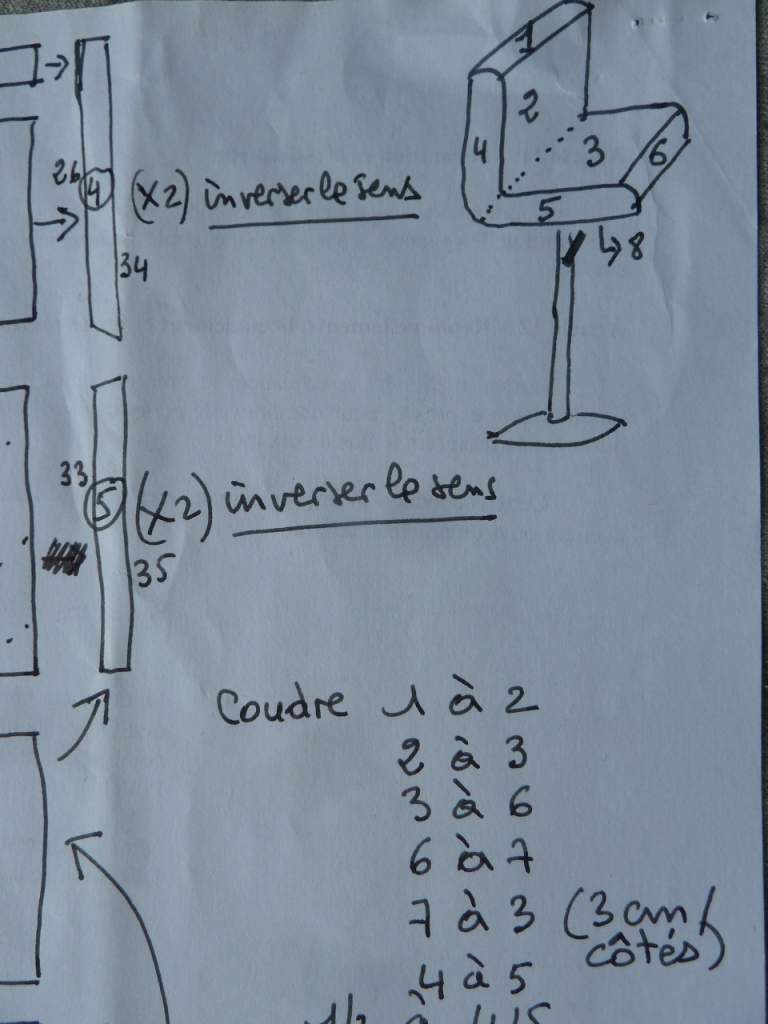 1
2
3
4
5
6
↳8
26
4
(X2) inverser le sens
34
33
5
(X2) inverser le sens
35
Coudre 1 à 2
2 à 3
3 à 6
6 à 7
7 à 3 (3 cm/
côtés)
4 à 5